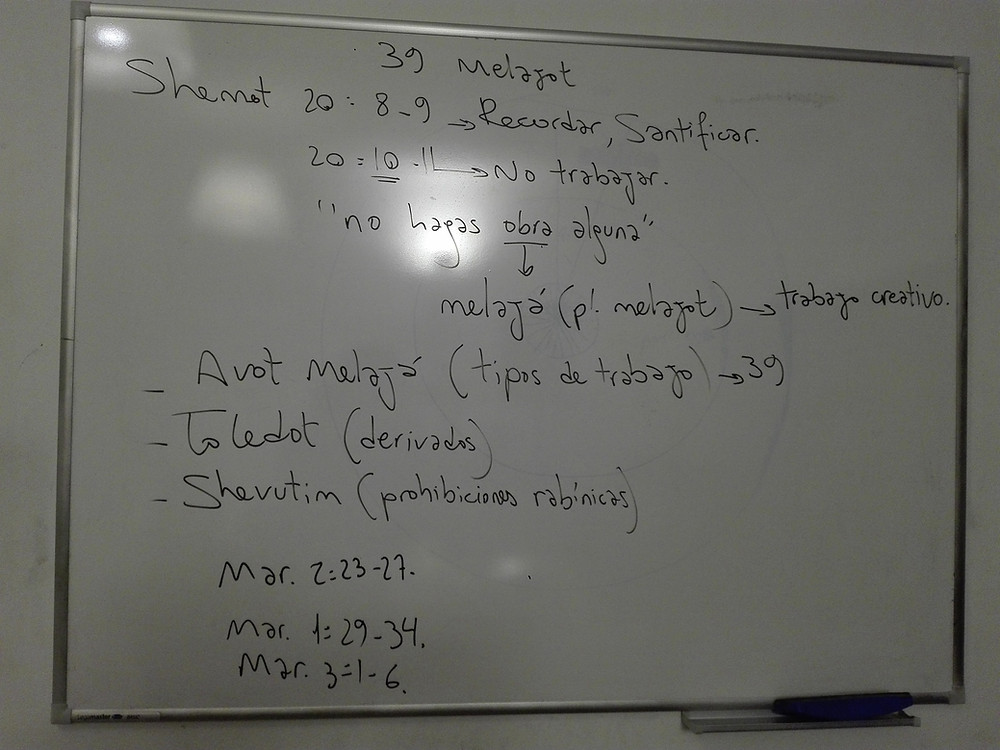 39 Melajot
Shemot 20:8-9 → Recordar, Santificar.
20:10-11 → No trabajar.
"no hagas obra alguna"
↓
melajá (pl. melajot) → trabajo creativo.
- Avot Melajá (tipos de trabajo) → 39
- Toledot (derivados)
- Shevutim (prohibiciones rabínicas)
Mar. 2:23-27.
Mar. 1:29-34.
Mar. 3:1-6.